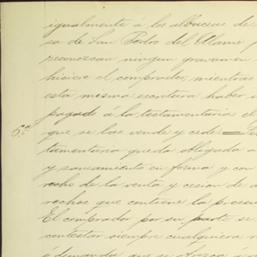 igualmente á los albaceas de
so de San Pedro del Alamo y
reconozcan ningun gravamen
hiciere el comprador, mientras
esta misma escritura haber
pagado á la testamentaria el
6.ª que se les vende y cede =
tamentaria queda obligada á
y saneamiento en forma y con
recho de la venta y cesion de
rechos que contiene la presen
El comprador por su parte se
contestar siempre cualquiera
demandas que se